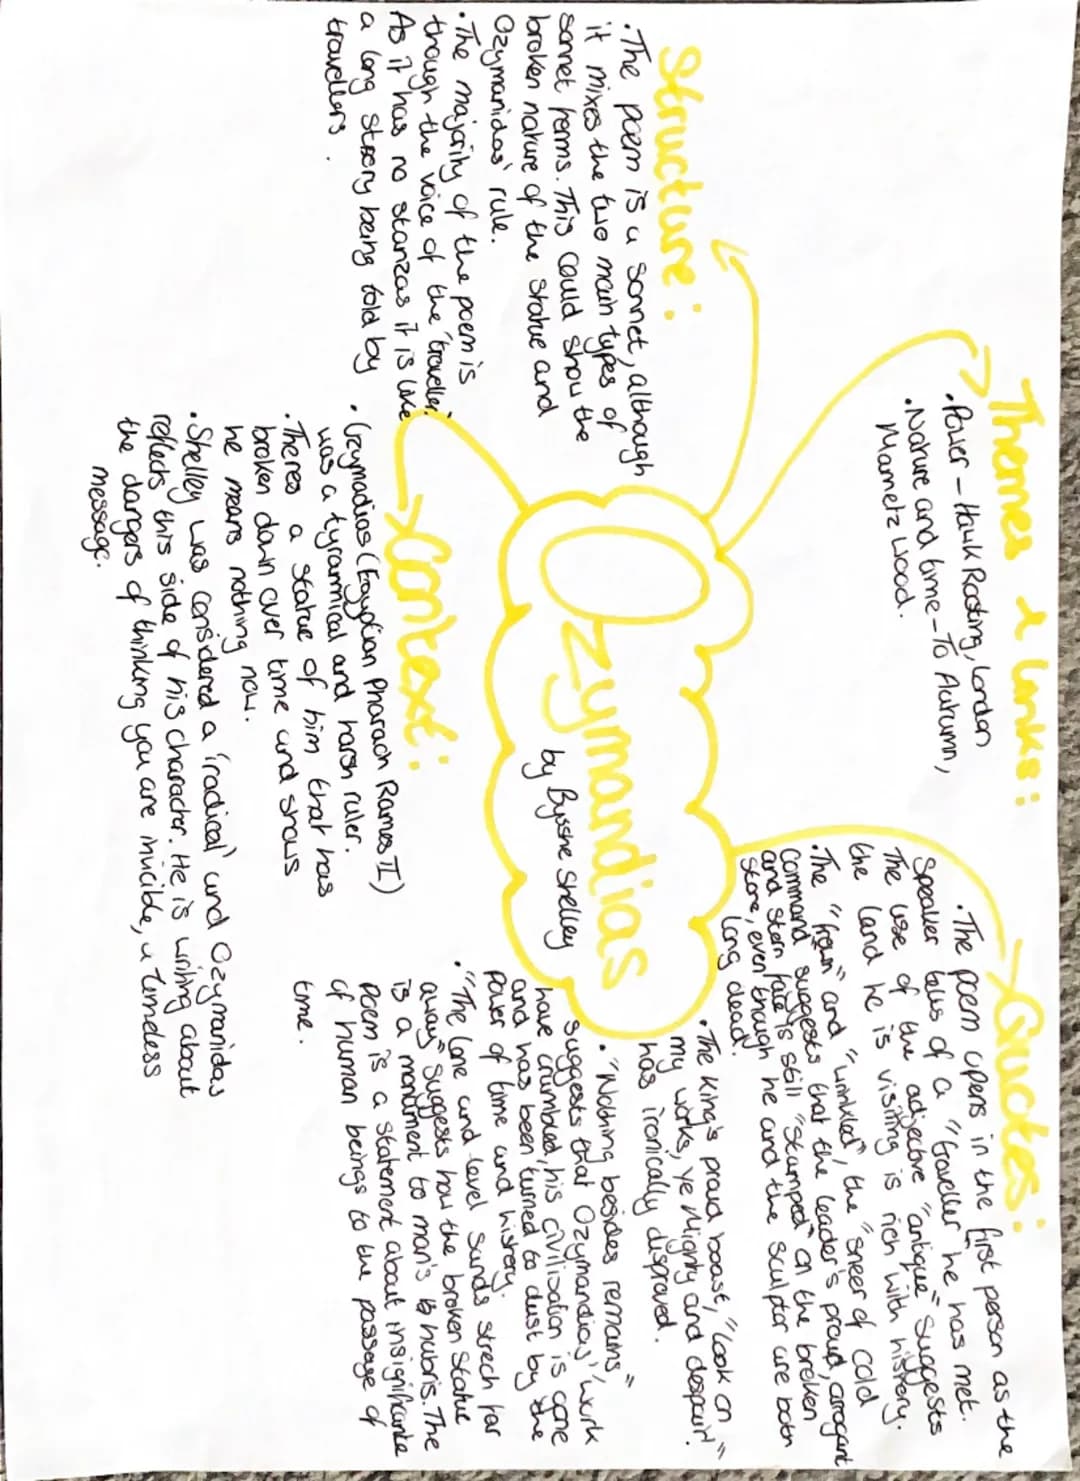 Ozymandias
by Bysshe Shelley
Themes & Links:
• Power - Hawk Roosting, London
• Nature and time - To Autumn,
Mametz Wood.
Structure:
• The poem is a sonnet, although
it mixes the two main types of
sonnet forms. This could show the
broken nature of the statue and
Ozymanidas' rule.
• The majority of the poem is
through the voice of the "traveller"
As it has no stanzas it is like
a long story being told by
travellers.
Quotes:
• The poem opens in the first person as the
speaker tells of a "traveller" he has met.
The use of the adjective "antique" suggests
the land he is visiting is rich with history.
• The "frown" and "wrinkled", the "sneer of cold
command" suggests that the leader's proud, arrogant
and stern face is still "stamped" on the broken
stone, even though he and the sculptor are both
long dead.
• The King's proud boast, "Look on
my works, ye Mighty and despair!"
has ironically disproved.
• "Nothing besides remains,"
suggests that Ozymandias' work
have crumbled, his civilisation is gone
and has been turned to dust by the
power of time and history.
• "The lone and level sands strech far
away" suggests how the broken statue
is a monument to man's hubris. The
poem is a statement about insignificance
of human beings to the passage of
time.
Context:
• Ozymadias (Egyptian Pharaoh Rames II)
was a tyrannical and harsh ruler.
• Theres a statue of him that has
broken down over time and shows
he means nothing now.
• Shelley was considered a 'radical' and Ozymanidas
reflects this side of his character. He is writing about
the dangers of thinking you are invicible, a timeless
message.